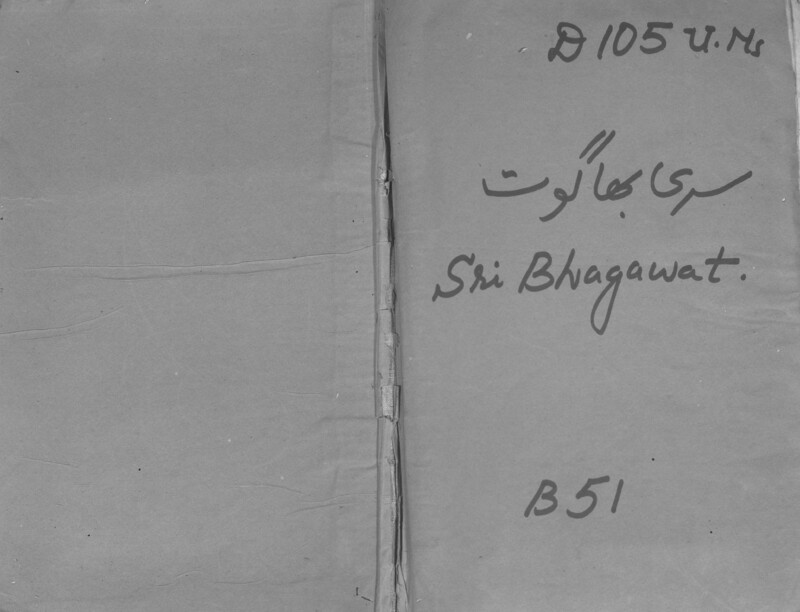 D 105 U. Ms
سری بھاگوت
Sri Bhagawat.
B 51